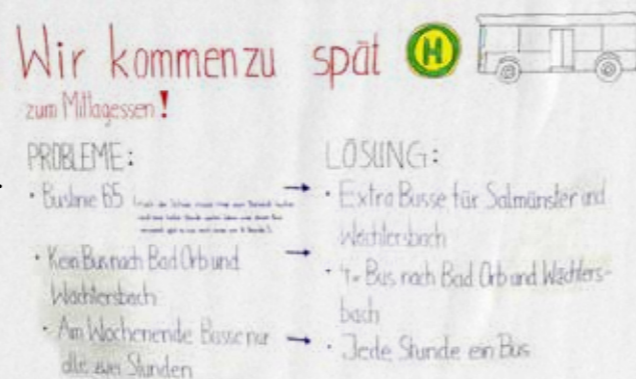 Wir kommen zu spät H
zum Mittagessen!
PROBLEME:
• Buslinie 65
• Kein Bus nach Bad Orb und
Wächtersbach
• Am Wochenende Busse nur
alle zwei Stunden
LÖSUNG:
• Extra Busse für Salmünster und
Wächtersbach
• Bus nach Bad Orb und Wächters-
bach
• Jede Stunde ein Bus